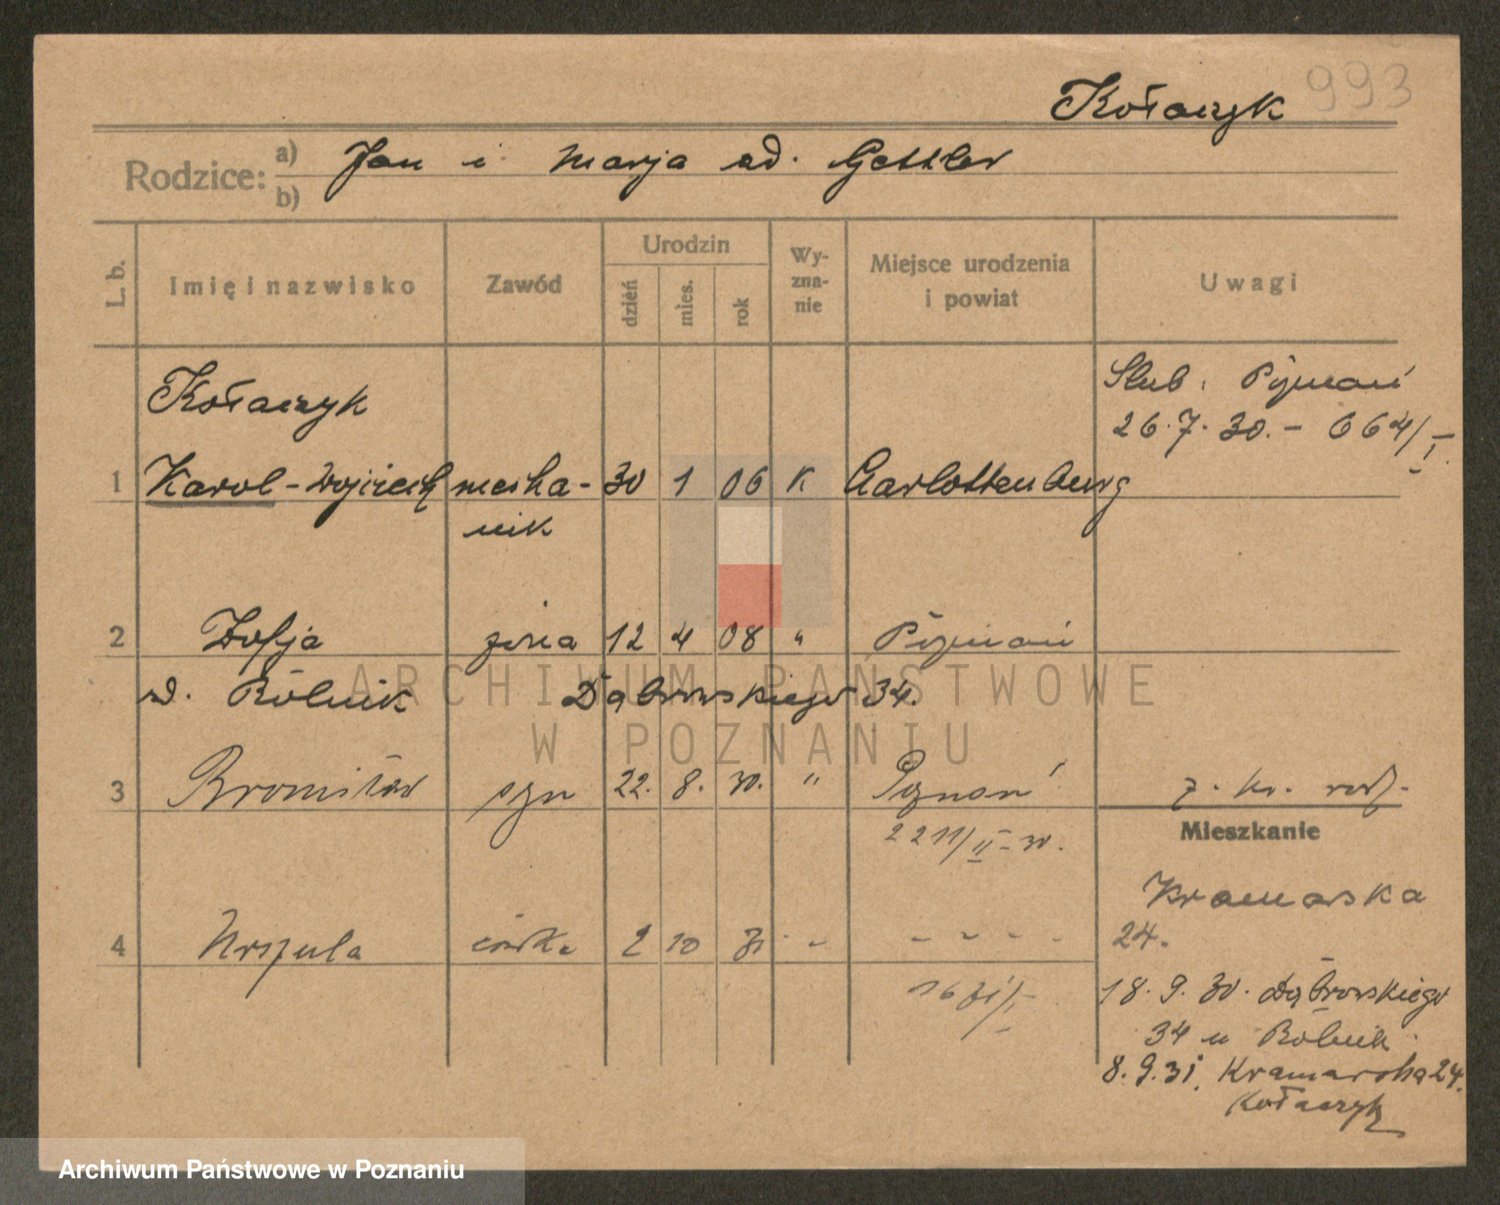 993
Kołaczyk
Rodzice: a) b) Jan i Marja ad. Gettler
L. b. Imię i nazwisko Zawód Urodzin dzień mies. rok Wy-zna-nie Miejsce urodzenia i powiat Uwagi
Kołaczyk Slub. Poznań
26.7.30. - 664/I.
1 Karol-Wojciech mecha- 30 1 06 K Carlottenburg
nik
2 Zofja żona 12 4 08 " Poznań
d. Rólnik Dąbrowskiego 34.
3 Bronisław syn 22. 8. 30. " Poznań z. kr. rodz.
2211/II-30. Mieszkanie
Kramarska
4 Urszula córka 2 10 31 - - - - - - 24.
1631/I 18.9.30. Dąbrowskiego
34 u Rólnik
8.9.31. Kramarska 24.
Kołaczyk
ARCHIWUM PAŃSTWOWE
W POZNANIU
Archiwum Państwowe w Poznaniu